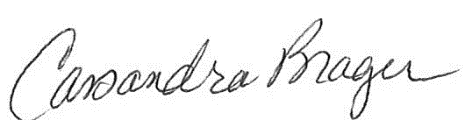 Cassandra Brager